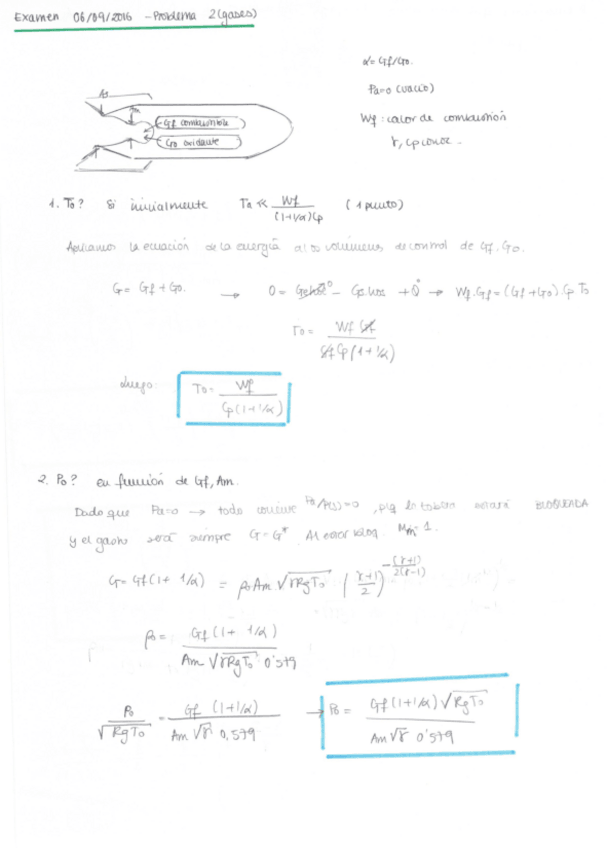 Examen 06/09/2016 - Problema 2 (gases)
α = Gf/Go.
Pa=0 (vacío)
As
Gf combustible
Go oxidante
Wf: calor de combustión
γ, Cp conoc.
1. To? Si inicialmente Ta << Wf/((1+1/α)Cp) (1 punto)
Aplicamos la ecuación de la energía a los volúmenes de control de Gf, Go.
G = Gf + Go. → 0 = - G cp To + Q̇ → Wf·Gf = (Gf+Go) Cp To
To = Wf Gf / (Gf Cp (1+1/α))
Luego: To = Wf / (Cp(1+1/α))
2. Po? en función de Gf, Am.
Dado que Pa=0 → todo Pa/P(s)=0, la tobera estará BLOQUEADA
y el gasto será siempre G=G* . Al estar Mm=1.
G = Gf(1+1/α) = ρo Am √(γRgTo) ((γ+1)/2)^(-(γ+1)/(2(γ-1)))
ρo = Gf(1+1/α) / (Am √(γRgTo) 0'579)
Po/√(RgTo) = Gf (1+1/α) / (Am √γ 0,579) → Po = Gf(1+1/α)√(RgTo) / (Am √γ 0'579)